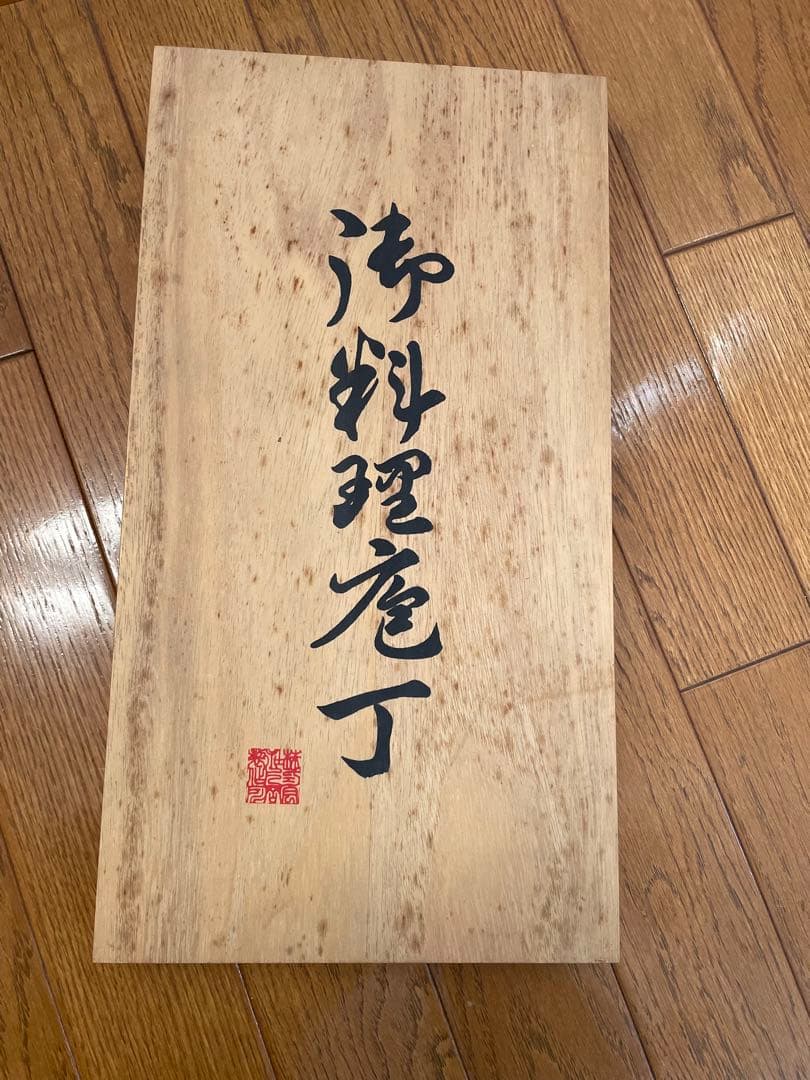 御料理庖丁